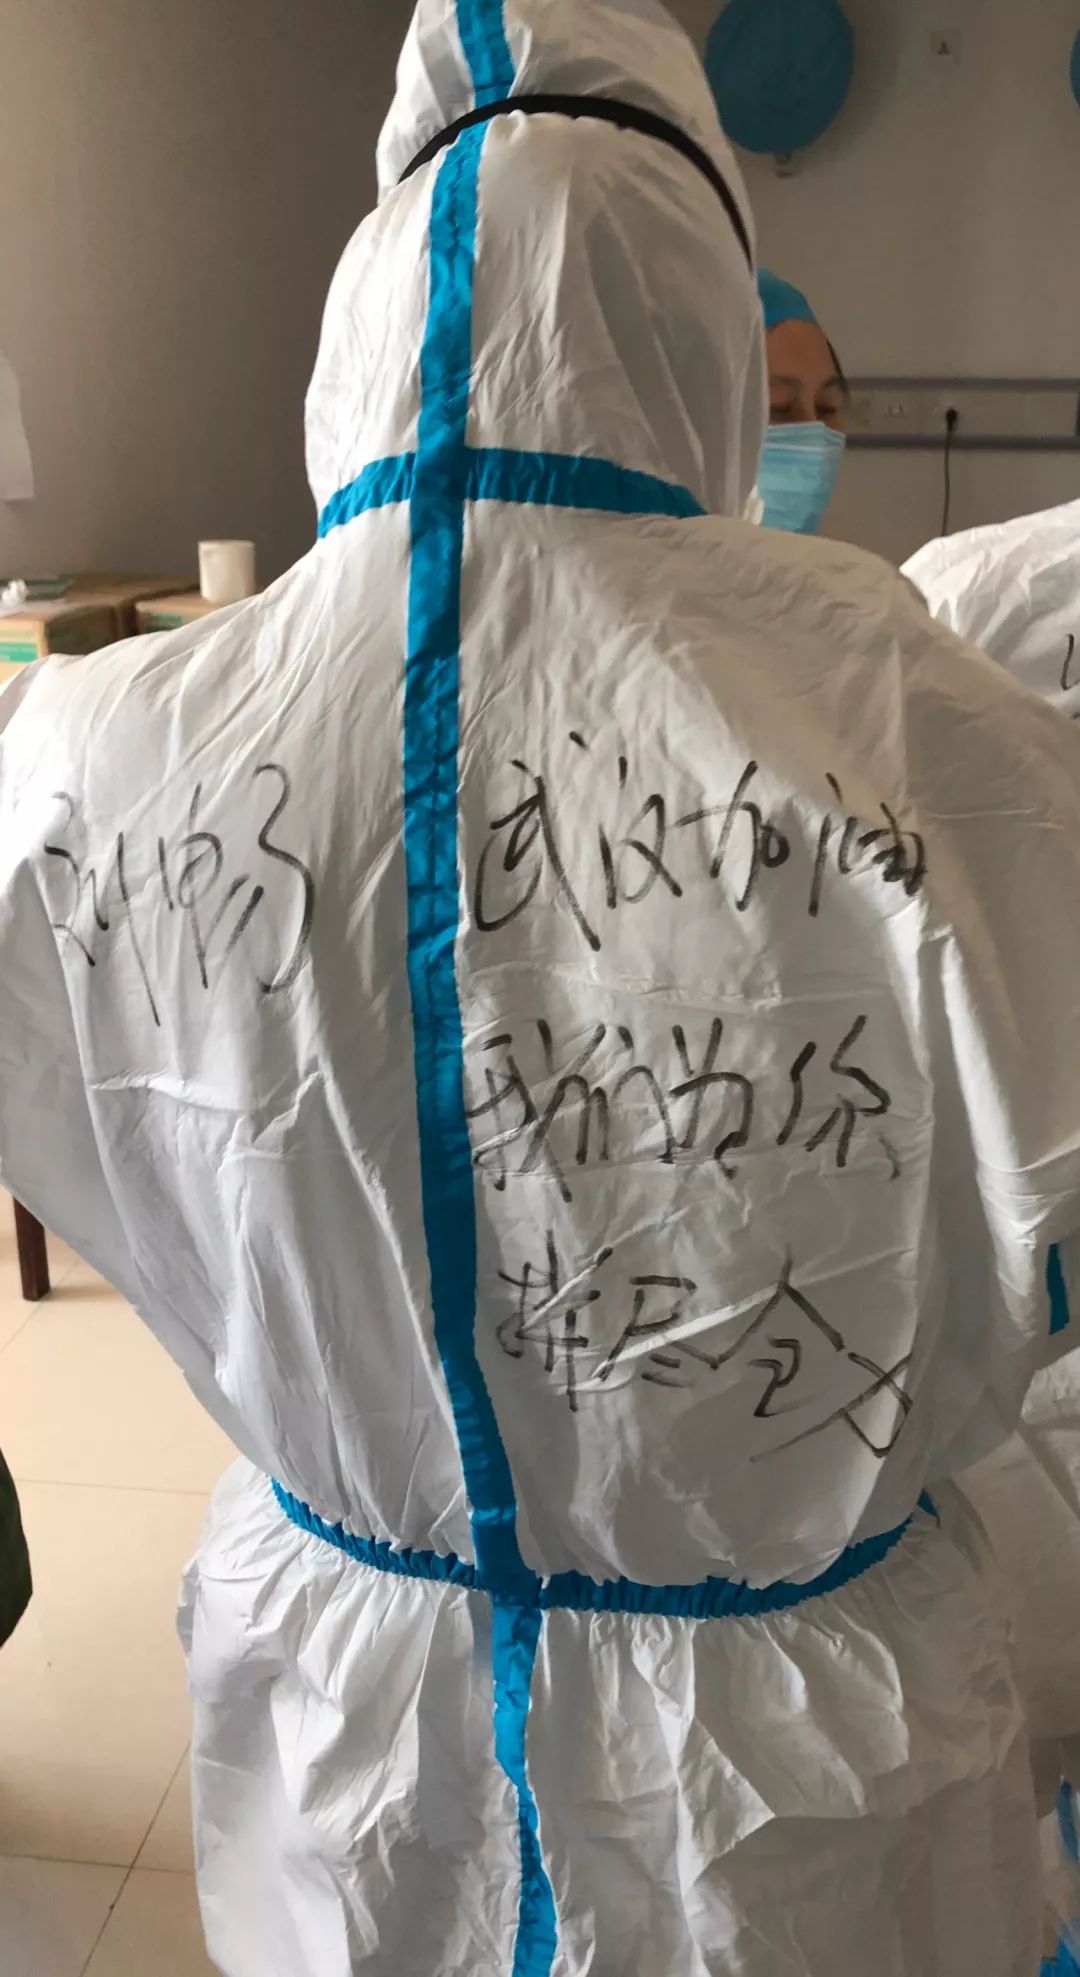 刘畅
武汉加油
我们为你
拼尽全力